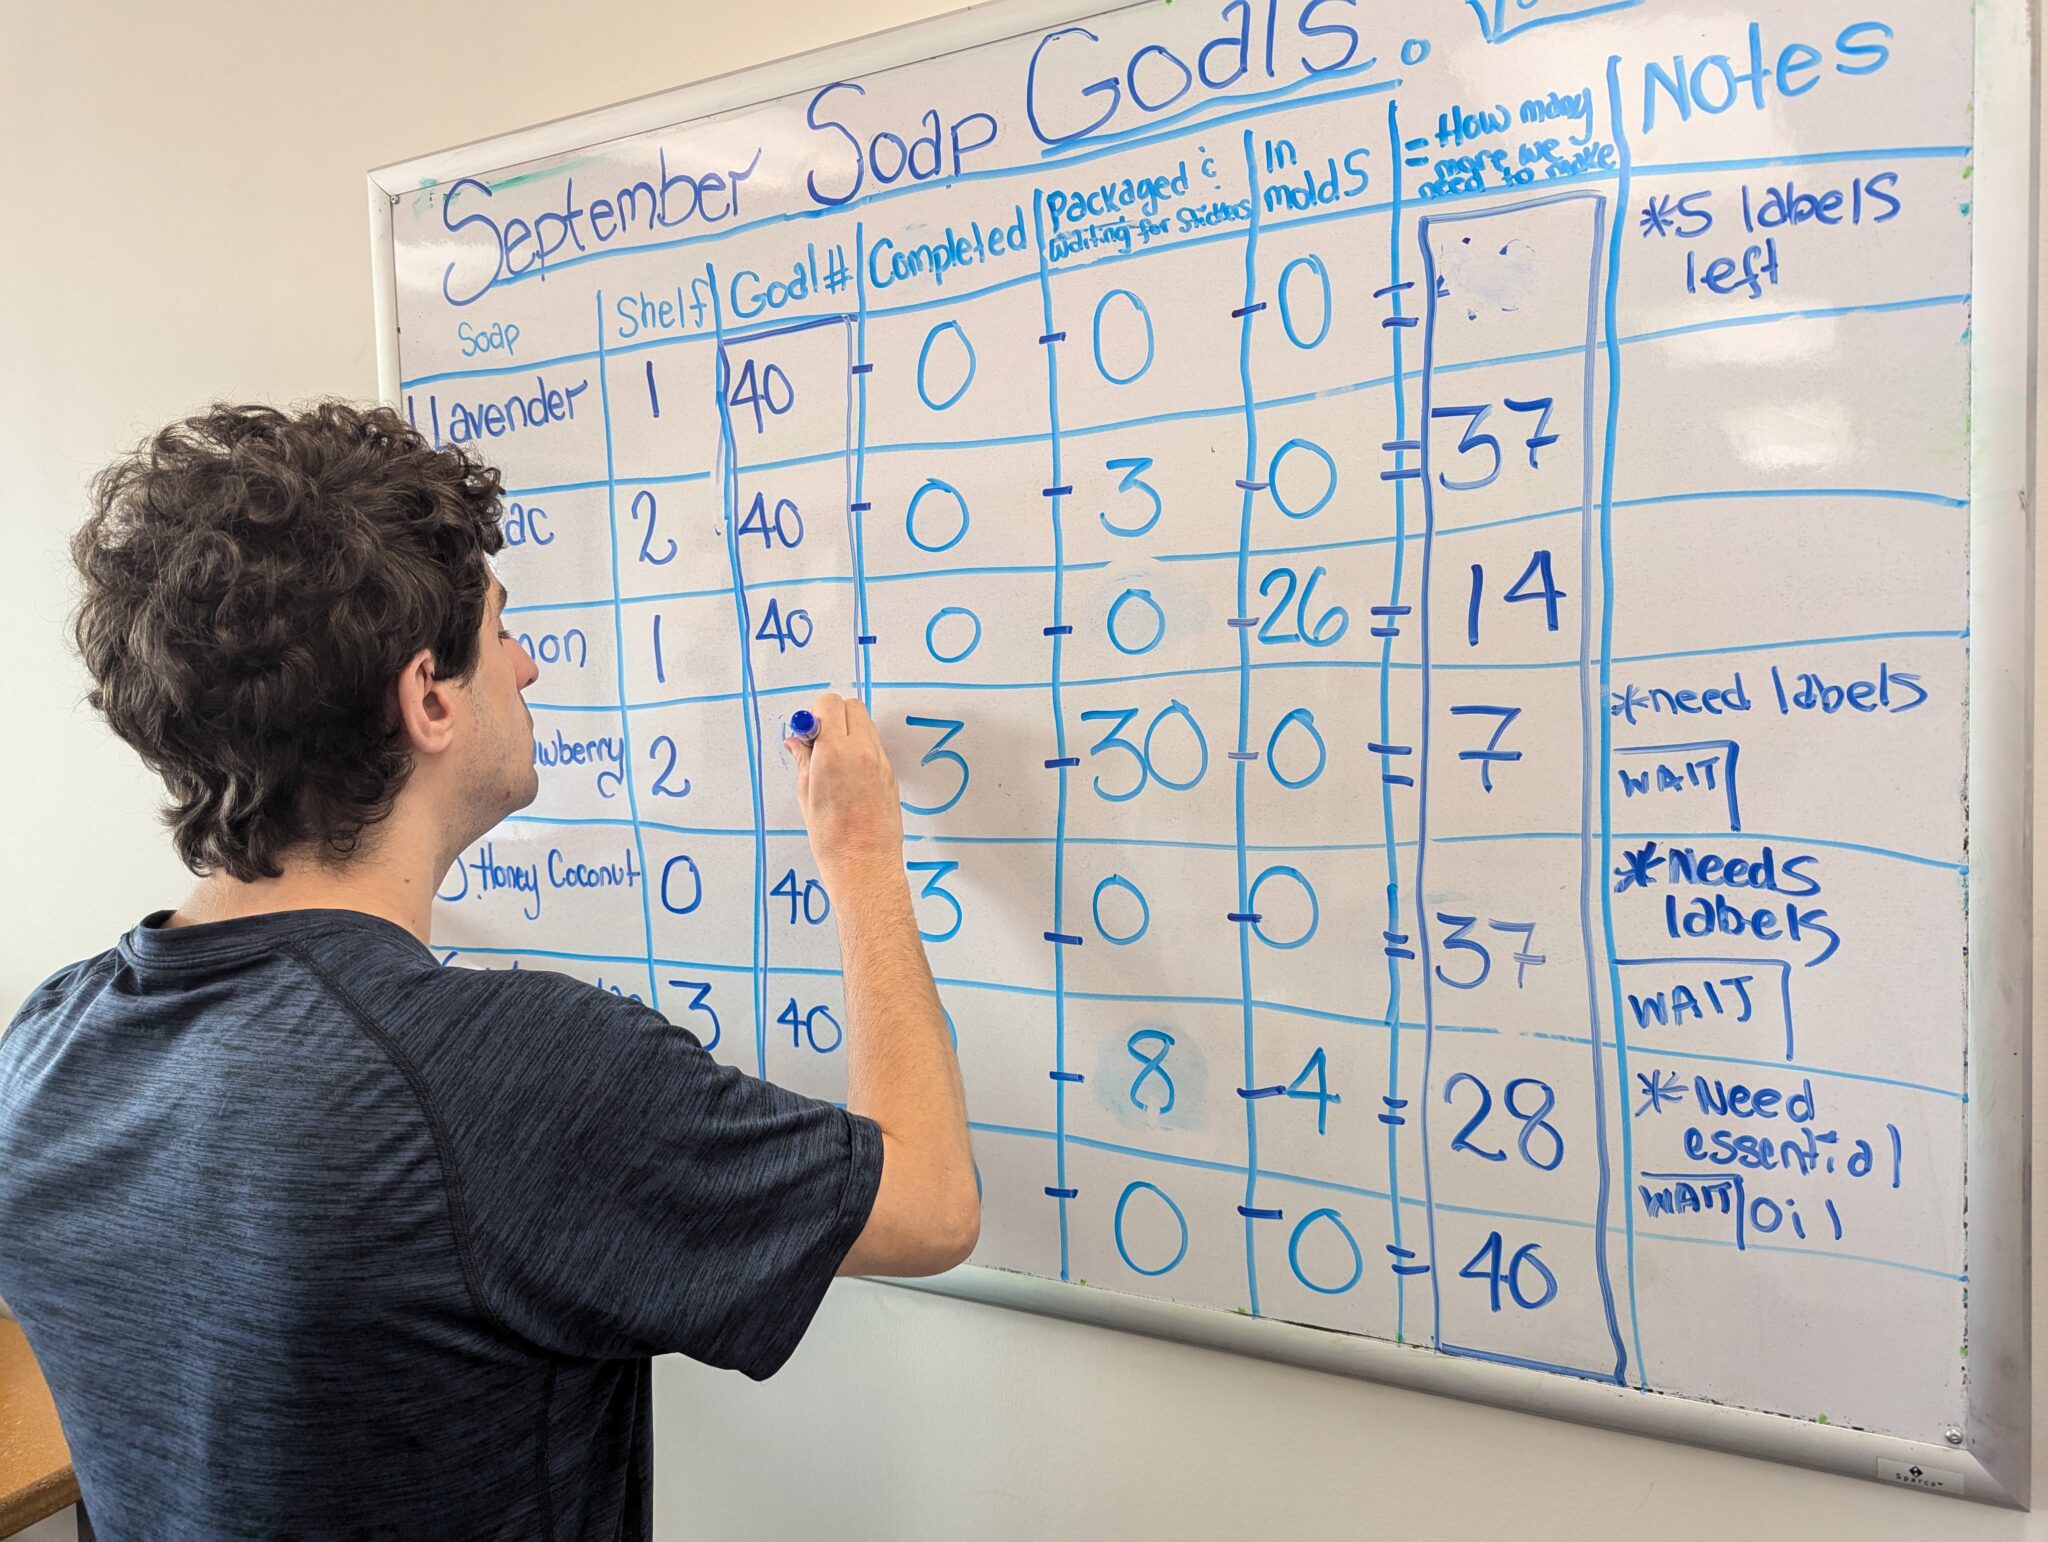 September Soap Goals.
Soap Shelf Goal # Completed Packaged & Waiting for Stickers In molds = How many more we need to make Notes
Lavender 1 40 - 0 - 0 - 0 = *5 labels left
ac 2 40 - 0 - 3 - 0 = 37
on 1 40 - 0 - 0 - 26 = 14
wberry 2 3 - 30 - 0 = 7 *need labels WAIT
5. Honey Coconut 0 40 3 - 0 - 0 = 37 *Needs labels WAIT
3 40 - 8 - 4 = 28 *Need essential oil WAIT
- 0 - 0 = 40
Sparco